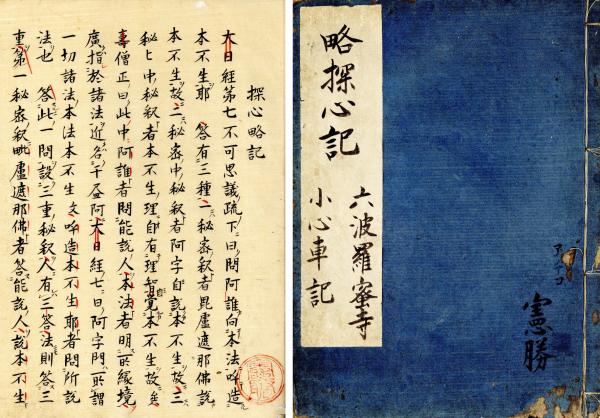 略探心記
六波羅蜜寺
小心車記
憲勝
探心略記
大日經第七不可思議疏下曰問阿誰向本法吽造
本不生耶 答有三種一秘密釈者毘盧遮那佛説
本不生故二秘密中秘釈者阿字自説本不生故三
秘々中秘釈者本不生理自有理智覺本不生故矣
僧正曰此中阿誰者問能説人本法者明所縁境
廣指於諸法近名千阿大日經七曰阿字門所謂
一切諸法本法本不生文吽造本不生耶者問所説
法也 答此一問設三重秘釈人有三答法則答三
重第一秘密釈毗盧遮那佛者答能説人説本不生